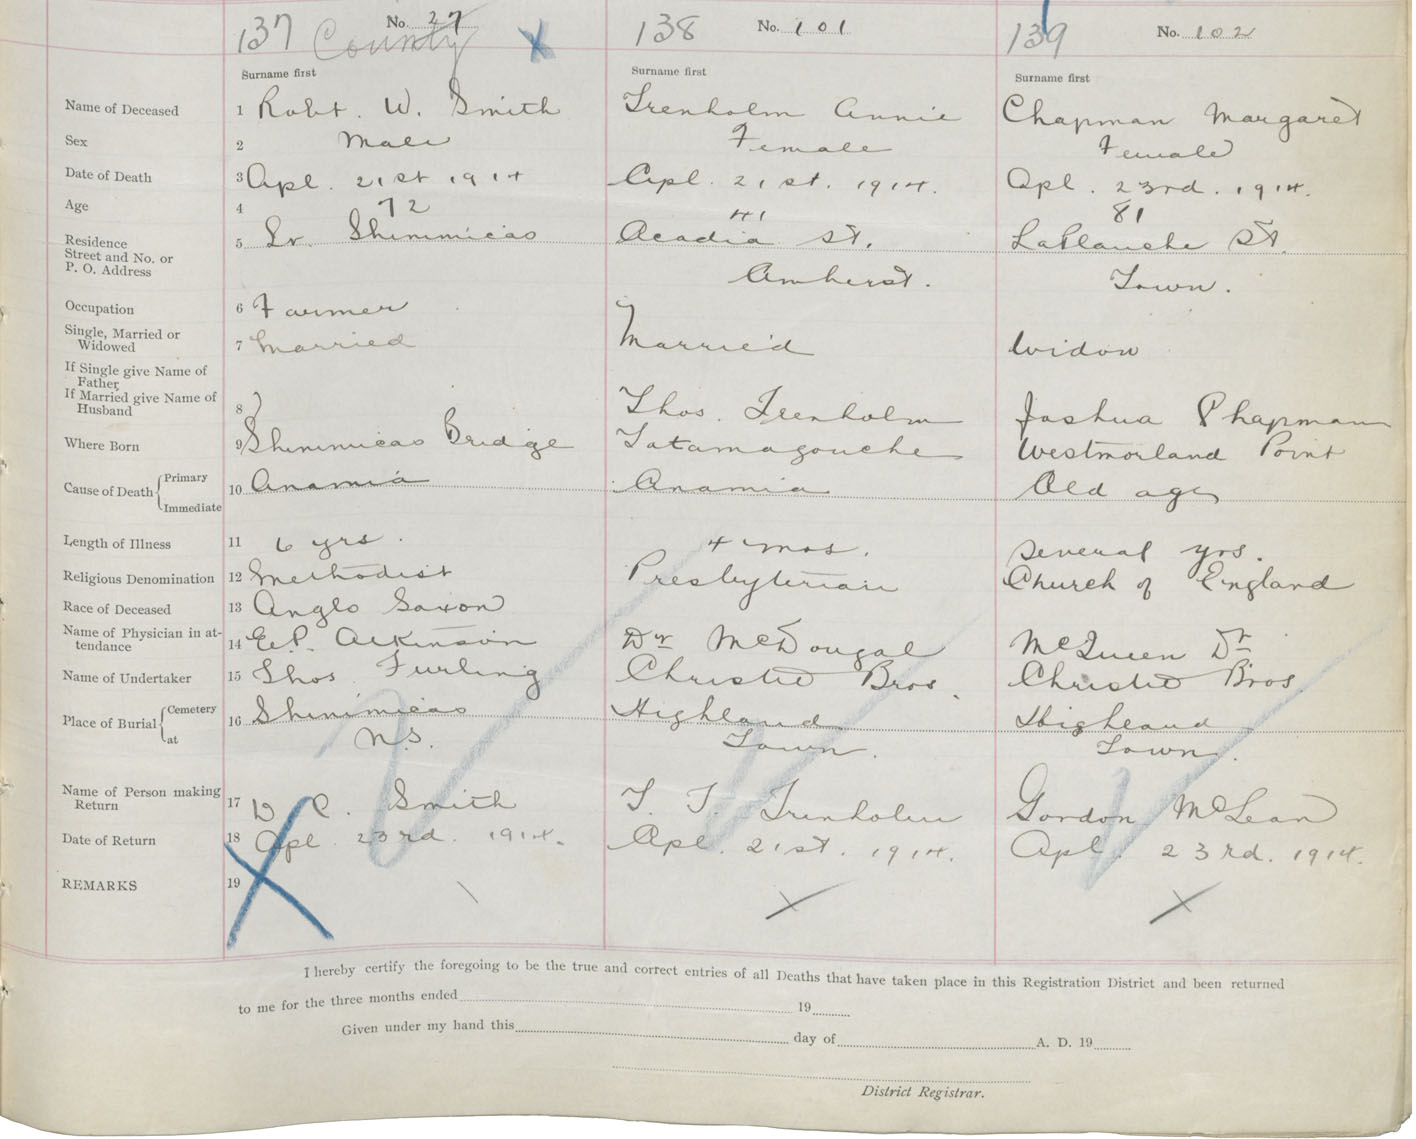 137 County No. 27 138 No. 101 139 No. 102
Surname first Surname first Surname first
Name of Deceased 1 Robt. W. Smith Trenholm Annie Chapman Margaret
Sex 2 Male Female Female
Date of Death 3 Apl. 21st 1914 Apl. 21st. 1914. Apl. 23rd. 1914.
Age 4 72 41 81
Residence
Street and No. or 5 Lr. Shinimicas Acadia St. LaPlanche St.
P. O. Address Amherst. Town.
Occupation 6 Farmer
Single, Married or
Widowed 7 Married Married Widow
If Single give Name of
Father
If Married give Name of
Husband 8 Thos. Trenholm Joshua Chapman
Where Born 9 Shinimicas Bridge Tatamagouche Westmorland Point
Cause of Death Primary
10 Anamia Anamia Old age
Immediate
Length of Illness 11 6 yrs. 4 mos. several yrs.
Religious Denomination 12 Methodist Presbyterian Church of England
Race of Deceased 13 Anglo Saxon
Name of Physician in at-
tendance 14 E.P. Atkinson Dr McDougal McQueen Dr
Name of Undertaker 15 Thos Furling Christie Bros. Christie Bros.
Place of Burial Cemetery 16 Shinimicas Highland Highland
at N.S. Town. Town.
Name of Person making
Return 17 D C. Smith T. T. Trenholm Gordon McLean
Date of Return 18 Apl 23rd. 1914. Apl. 21st. 1914. Apl. 23rd. 1914.
REMARKS 19
I hereby certify the foregoing to be the true and correct entries of all Deaths that have taken place in this Registration District and been returned
to me for the three months ended 19
Given under my hand this day of A. D. 19
District Registrar.